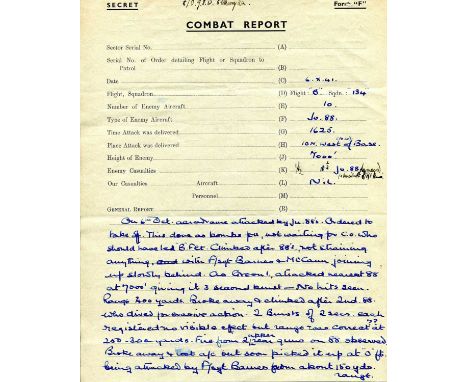 P/O J.E.D. Furneaux
SECRET
Form "F"
COMBAT REPORT
Sector Serial No. (A)
Serial No. of Order detailing Flight or Squadron to
Patrol (B)
Date (C) 6.X.41.
Flight, Squadron (D) Flight: 'B' Sqdn.: 134
Number of Enemy Aircraft (E) 10.
Type of Enemy Aircraft (F) Jo. 88.
Time Attack was delivered (G) 1625.
Place Attack was delivered (H) 10 m. West of Base.
Height of Enemy (J) 7000'
Enemy Casualties (K) Jo. 88
Our Casualties Aircraft (L) Nil.
Personnel (M)
GENERAL REPORT (R)
On 6th Oct. aerodrome attacked by Ju. 88s. Ordered to
take off. This done as bombs fell, not waiting for C.O. who
should have led B Flt. Climbed after 88's not straining
anything, and with F/Sgt Barnes & McCann joining
up slowly behind. As Green 1, attacked nearest 88
at 7000' giving it 3 second burst — No hits seen.
Range 300 yards. Broke away & climbed after 2nd. 88.
who dived for evasive action. 2 Bursts of 2 secs. each
registered no visible effect but range was correct at ??
200-300 yards. Fire from 2 upper rear guns on 88 observed
Broke away & lost a/c but soon picked it up at 0 ft.
being attacked by F/Sgt Barnes from about 150 yds.
range.